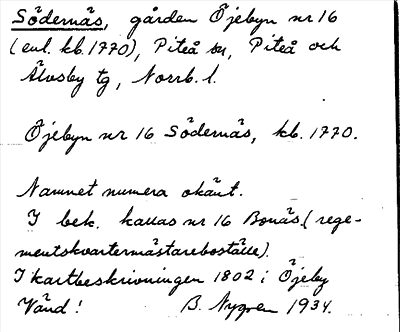 Södernäs, gården Öjebyn nr 16
(enl. kb. 1770), Piteå sn, Piteå och
Älvsby tg, Norrb. l.
Öjebyn nr 16 Södernäs, kb. 1770.
Namnet numera okänt.
I bek. kallas nr 16 Bonäs (rege-
mentskvartermästareboställe).
I kartbeskrivningen 1802 i Öjeby
Vänd! B. Nygren 1934.